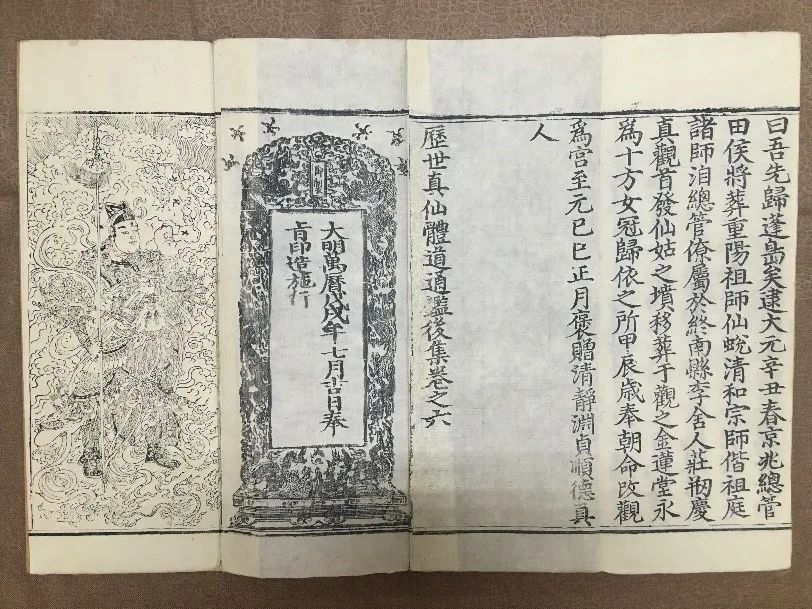 曰吾先歸蓬島矣建大元辛丑春京兆總管
田侯將葬重陽祖師仙蛻清和宗師偕祖庭
諸師洎總管僚屬於終南縣李舍人莊刱慶
真觀首發仙姑之墳移葬于觀之金蓮堂永
為十方女冠歸依之所甲辰歲奉朝命改觀
為宮至元己巳正月褒贈清靜淵貞順德真
人
歷世真仙體道通鑑後集卷之六
御製
大明萬曆戊戌年七月吉日奉
旨印造施行